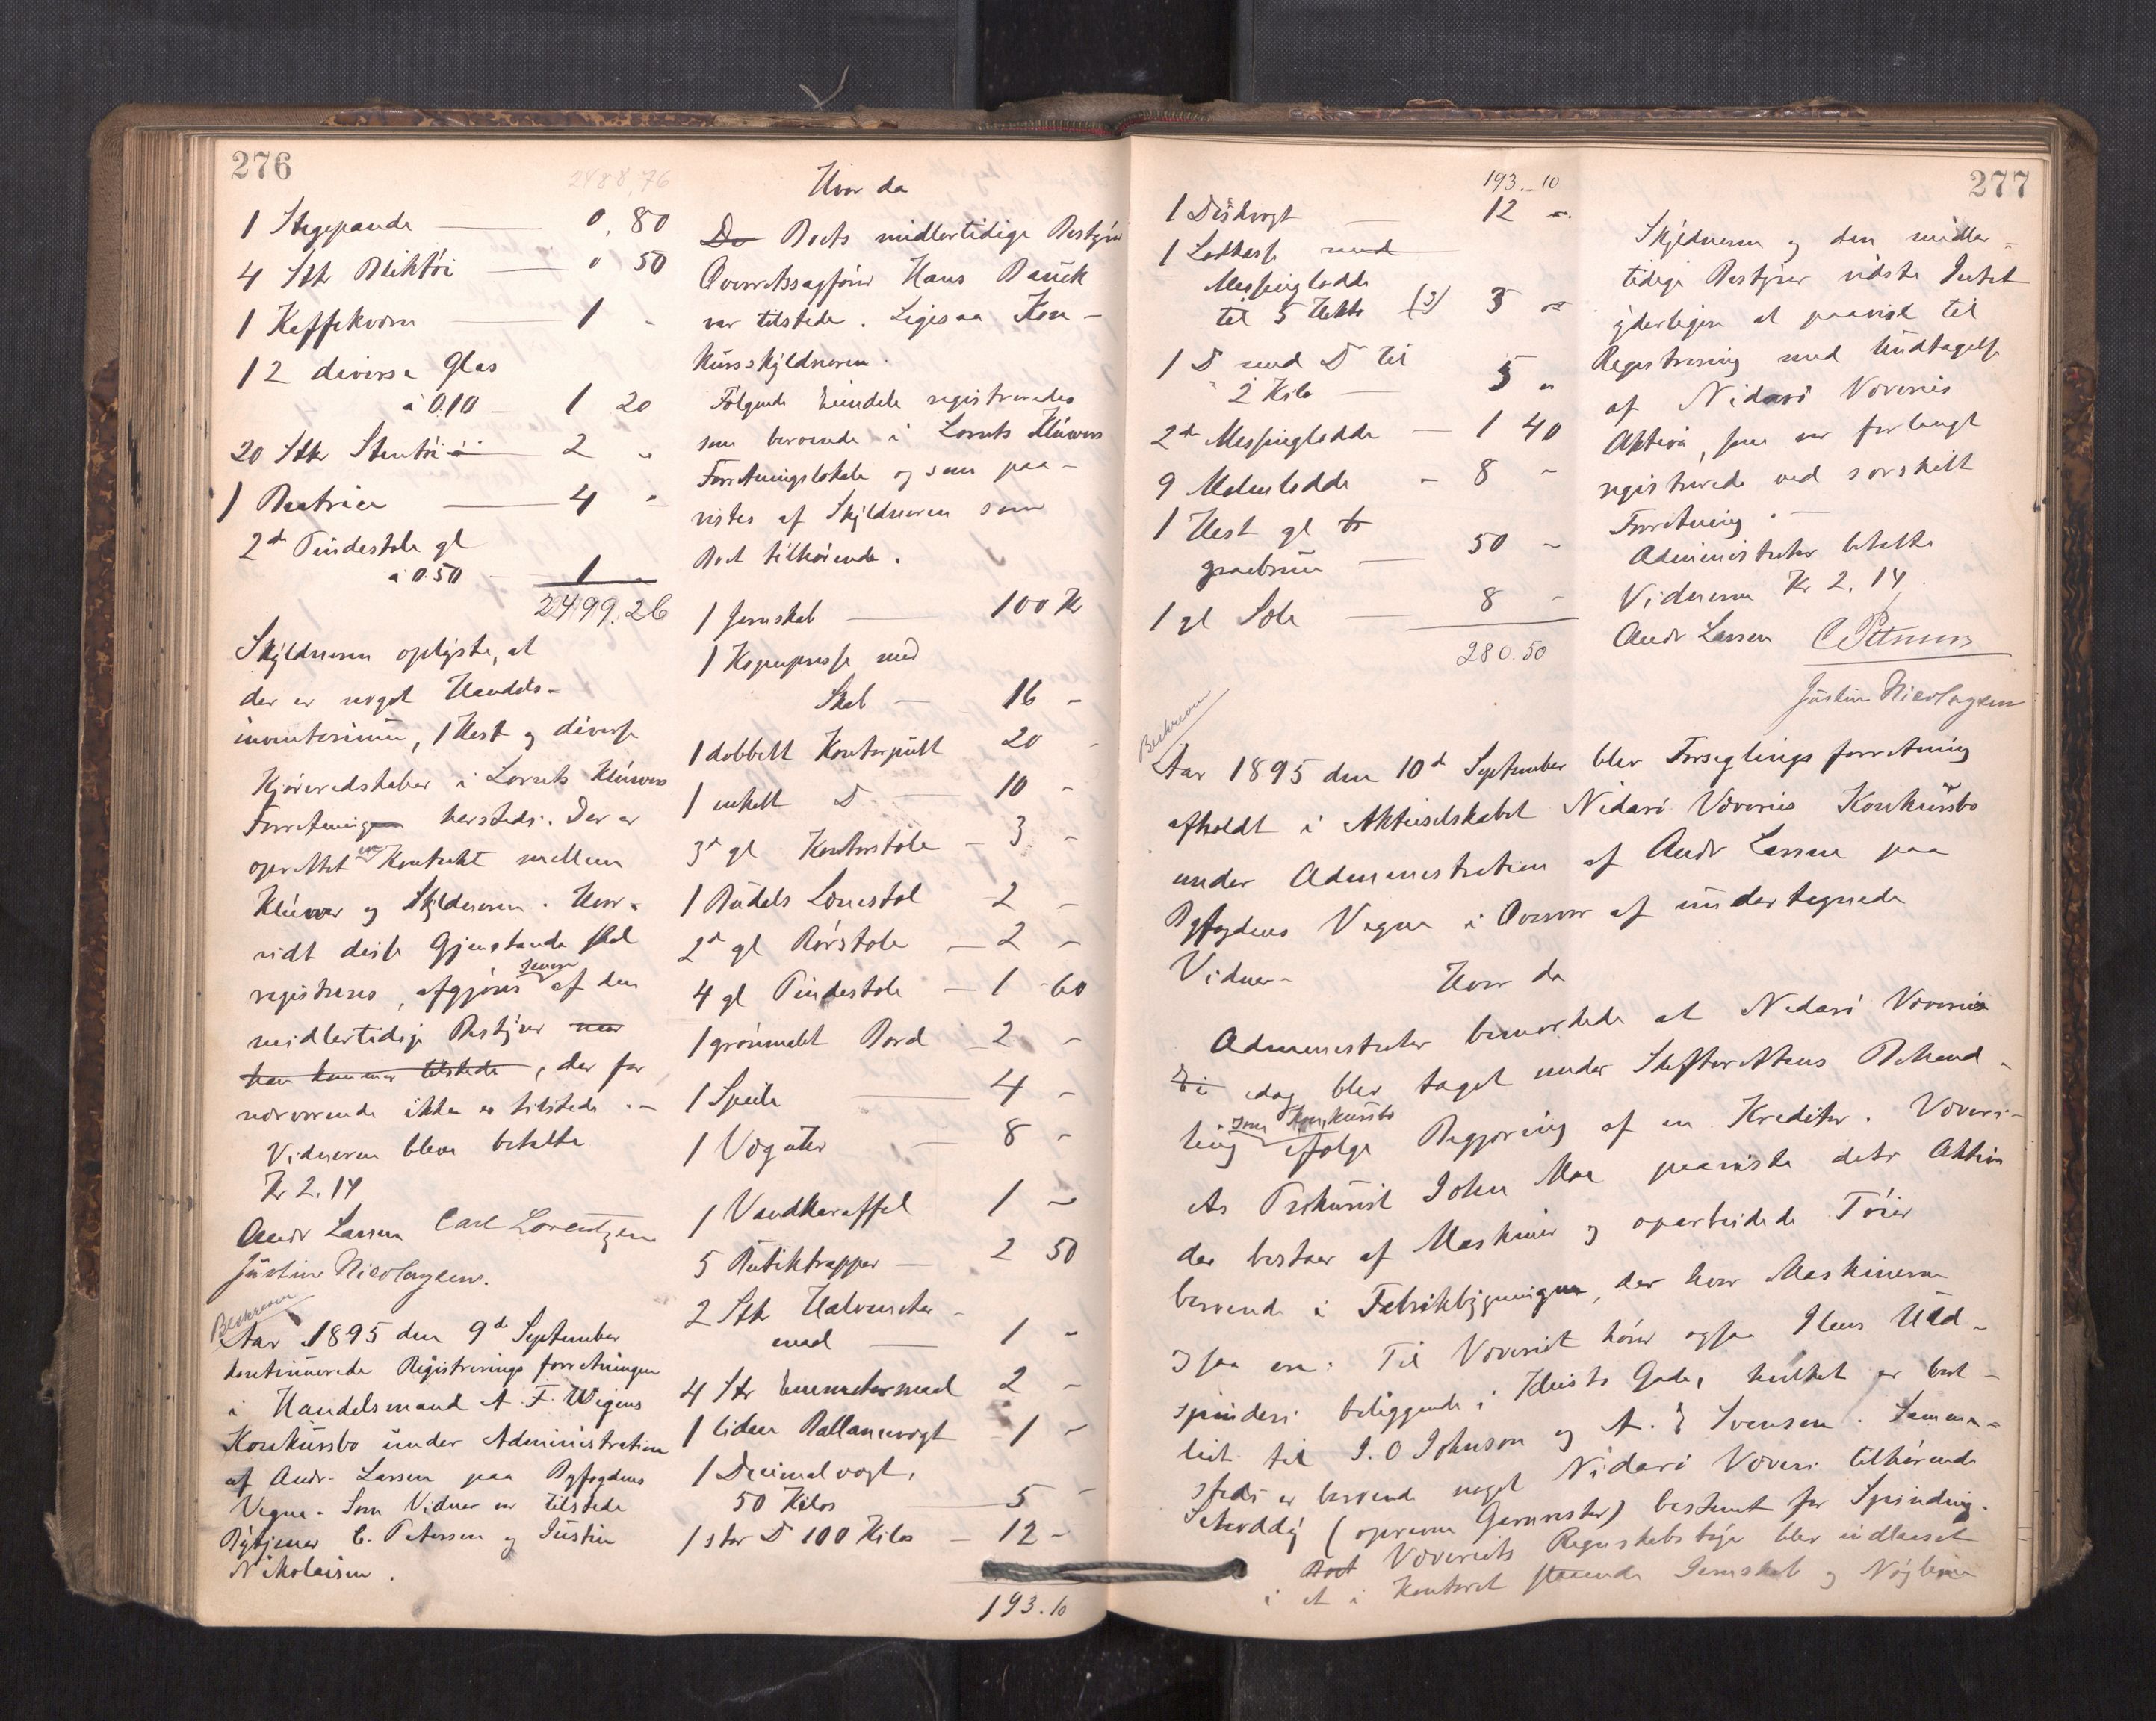 276
2488,76
1 Stegepande — 0,80
4 Stk Bliktöi — 0 50
1 Kaffekværn — 1 -
12 diverse Glas
à 0.10 — 1 20
20 Stk Stentöi — 2 "
1 Benktrice — 4 "
2de Pindestole gl
à 0.50 — 1
2499.26
Skyldneren oplyste, at
der er noget Handels-
inventarium, 1 Hest og diverse
Kjøreredskaber i Lorents Klüwers
Forretning hersteds. Der er
oprettet en Kontrakt mellem
Klüwer og Skyldneren. Hvor-
vidt disse Gjenstande skal
registreres, afgjøres senere af den
midlertidige Bestyrer naar
han kommer tilstede, der for
nærværende ikke er tilstede. -
Vidnerne bleve betalte
Kr 2.14
Andr Larsen Carl Lorentzen
Justin Nicolaysen.
Beskreven
Aar 1895 den 9de September
kontinuerede Registreringsforretningen
i Handelsmand A. F. Wigens
Konkursbo under Administration
af Andr. Larsen paa Byfogdens
Vegne. Som Vidner var tilstede
Bytjener C. Petersen og Justin
Nikolaisen.
Hvor da
De Boets midlertidige Bestyrer
Overretssagfører Hans Bauck
var tilstede. Ligesaa Kon-
kursskyldneren.
Følgende Eiendele registreredes
som beroende i Lorents Klüwers
Forretningslokale og som paa-
vistes af Skyldneren som
Boet tilhørende.
1 Jernskab — 100 Kr
1 Kopipresse med
Skab — 16 -
1 dobbelt Kontorpult 20 -
1 enkelt D — 10 -
3de gl Kontorstole — 3 -
1 Budels Lænestol 2 -
2de gl Rørstole — 2 -
4 gl Pindestole — 1 60
1 grønmalet Bord 2 -
1 Speile — 4 -
1 Væguhr — 8 -
1 Vandkaraffel 1 -
5 Butiktrapper — 2 50
2 Stk Halvmeter-
maal — 1 -
4 Stk Enmetermaal 2 -
1 liden Ballancevægt 1 -
1 Decimalvægt,
50 Kilos — 5 -
1 stor D 100 Kilos — 12 -
193.10
277
193.10
1 Diskvægt — 12 -
1 Lodkasse med
Messinglodde
til 5 Hekto (3) 3 -
1 D med D til
2 Kilo — 5 "
2de Messinglodde — 1 40
9 Malmlodde — 8 -
1 Hest gl
graabrun — 50 -
1 gl Sæle — 8 -
280.50
Skyldneren og den midler-
tidige Bestyrer vidste Intet
yderligere at paavise til
Registrering med Undtagelse
af Nidarö Væveris
Aktiva, som var forlangt
registrerede ved særskilt
Forretning. -
Administrator betalte
Vidnerne Kr 2.14.
Andr Larsen C Petersen
Justin Nicolaysen
Beskreven
Aar 1895 den 10de September blev Forseglingsforretning
afholdt i Aktieselskabet Nidarö Væveries Konkursbo
under Administration af Andr Larsen paa
Byfogdens Vegne i Overvær af undertegnede
Vidner-
Hvor da
Administrator bemærkede at Nidarö Væveri
idag blev taget under Skifterettens Behand-
ling som Konkursbo ifølge Begjæring af en Kreditor. Væveri-
ets Prokurist John Moe paaviste dets Aktiva
der bestaar af Maskiner og oparbeidede Tøier
beroende i Fabrikbygningen, der hvor Maskinerne
ogsaa ere. Til Væveriet hører ogsaa Ilens Uld-
spinderi beliggende i Hjeists Gade, hvilket er bort-
leiet til J. O Johnson og A. E Svensen. Samme-
steds er beroende noget Nidarö Væveri tilhørende
Schoddy (oprevne Garnrester) bestemt for Spinding.
Boet Væveriets Regnskabsbøger blev indlaaset
i et i Kontoret staaende Jernskab og Nøglerne